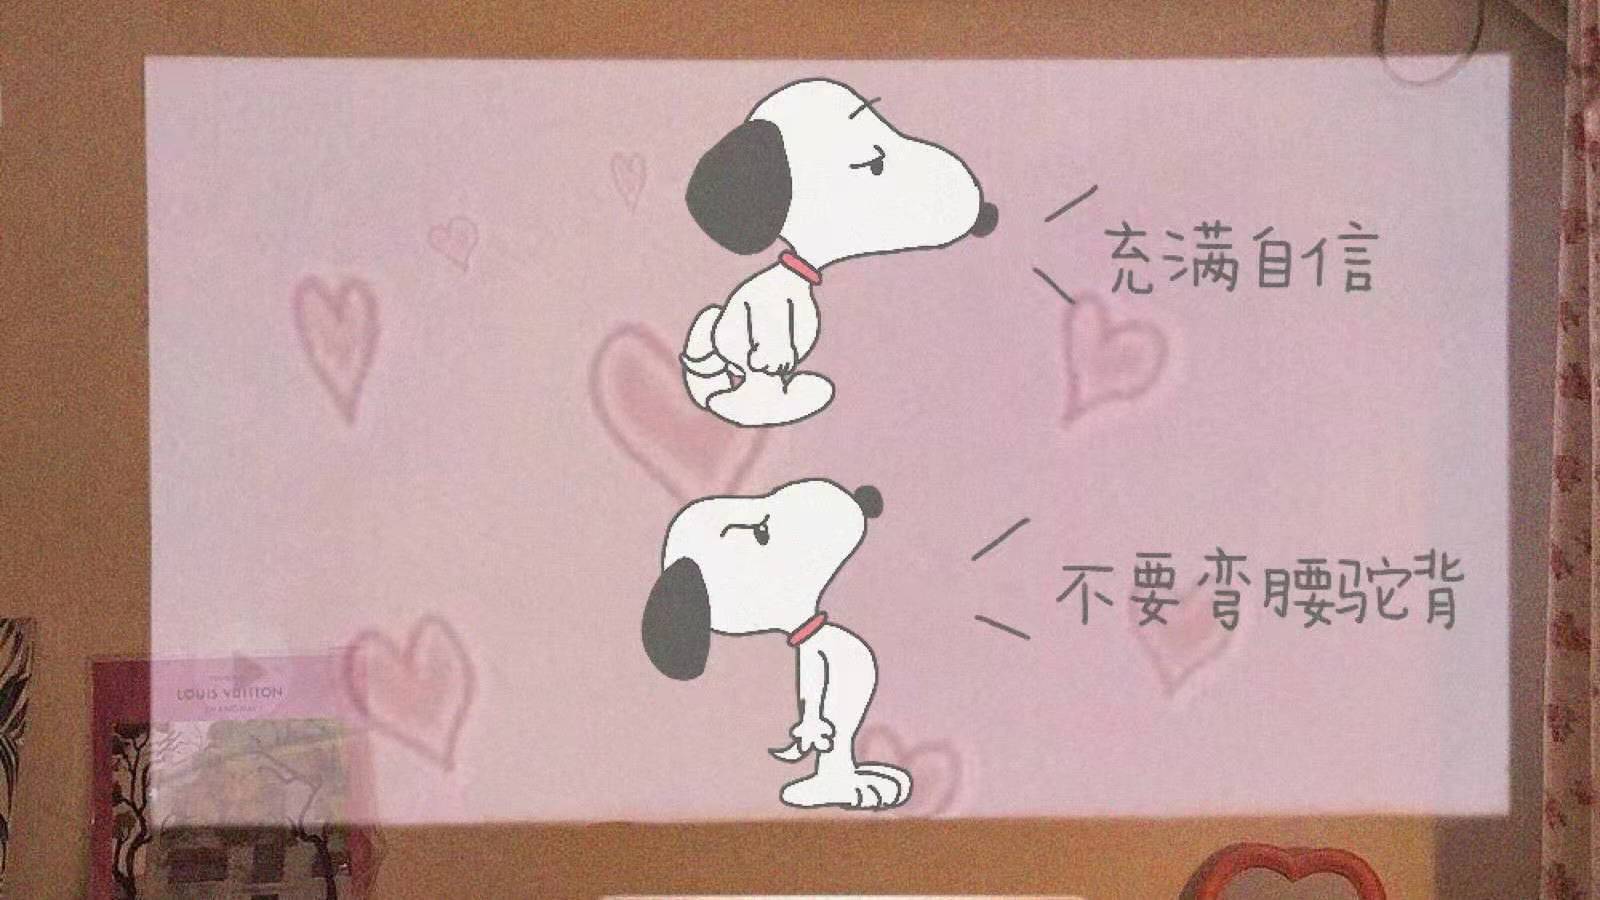 充满自信
不要弯腰驼背
LOUIS VUITTON
SHANGHAI